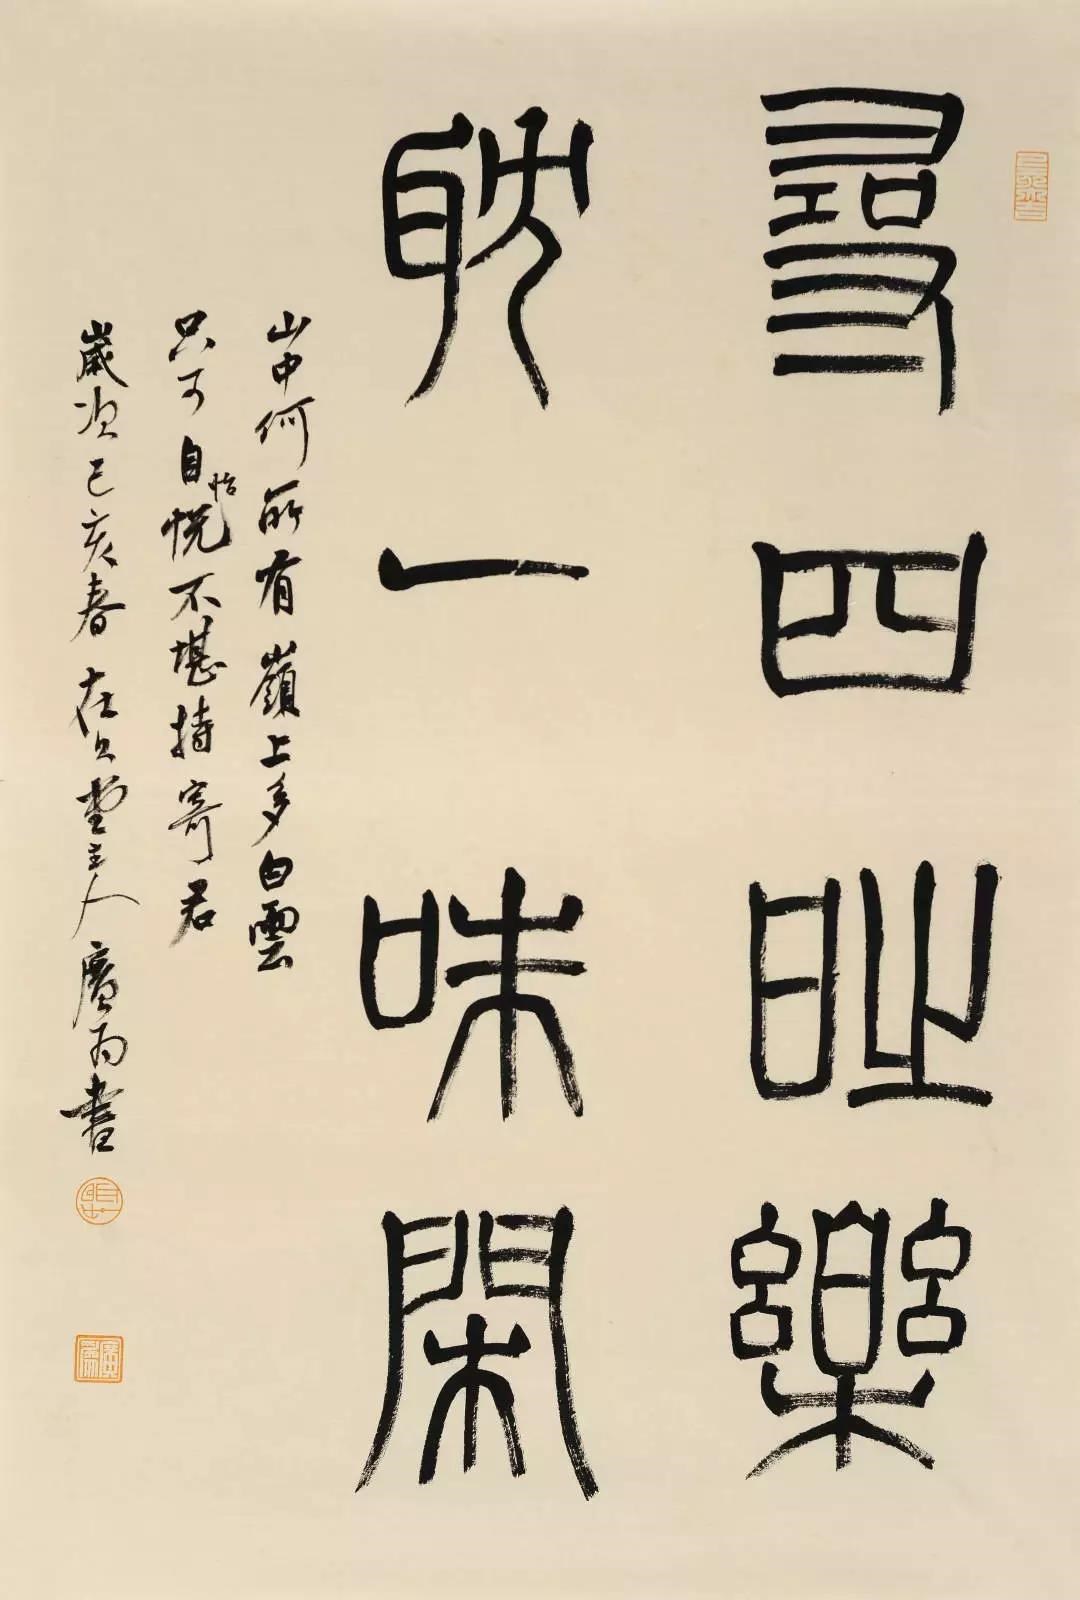 尋四時樂
耽一味閑
山中何所有嶺上多白雲
只可自怡悅不堪持寄君
歲次己亥春在堂主人廣書